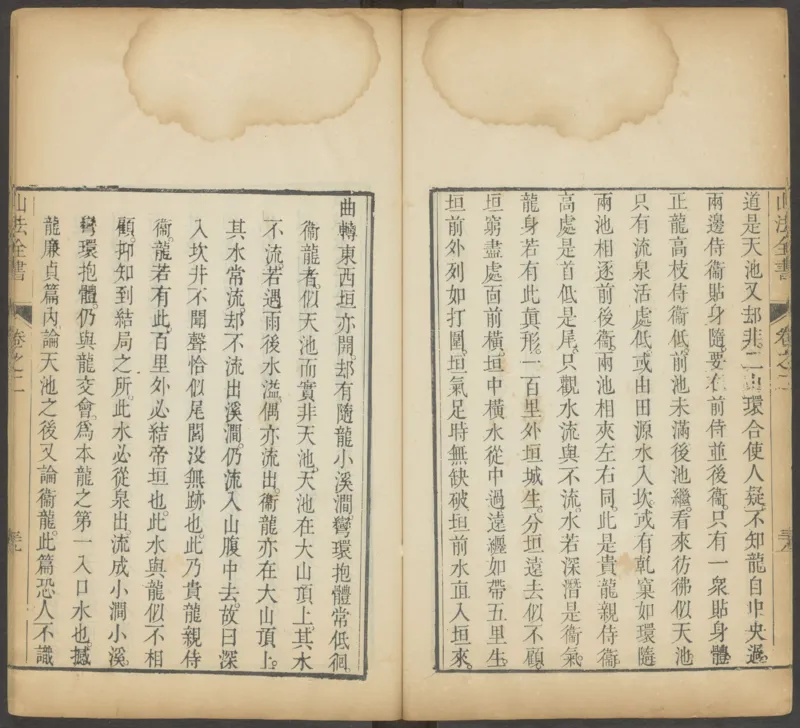 道是天池又却非。二山環合使人疑。不知龍自中央過。
兩邊侍衞貼身隨。要在前侍並後衞。只有一衆貼身體。
正龍高枝侍衞低。前池未滿後池繼。看來彷彿似天池
只有流泉活處低。或由田源水入坎。或有乾窠如環隨
兩池相逐前後衞。兩池相夾左右同。此是貴龍親侍衞
高處是首低是尾。只觀水流與不流。水若深潛是衞氣。
龍身若有此眞形。一百里外垣城生。分垣遠去似不顧。
垣窮盡處面前橫。垣中橫水從中過。遠纏如帶五里生。
垣前外列如打圍。垣氣足時無缺破。垣前水直入垣來。
曲轉東西垣亦開。却有隨龍小溪澗。彎環抱體常低徊
衞龍者。似天池而實非天池。天池在大山頂上。其水
不流。若遇雨後水溢。偶亦流出。衞龍亦在大山頂上。
其水常流。却不流出溪澗。仍流入山腹中去。故曰深
入坎井不聞聲。恰似尾閭没無跡也。此乃貴龍親侍
衞。龍若有此。百里外必結帝垣也。此水與龍似不相
顧。抑知到結局之所。此水必從泉出。流成小澗小溪。
彎環抱體。仍與龍交會。爲本龍之第一入口水也。撼
龍廉貞篇內。論天池之後。又論衞龍。此篇恐人不識
山法全書
卷之二
山法全書
卷之二